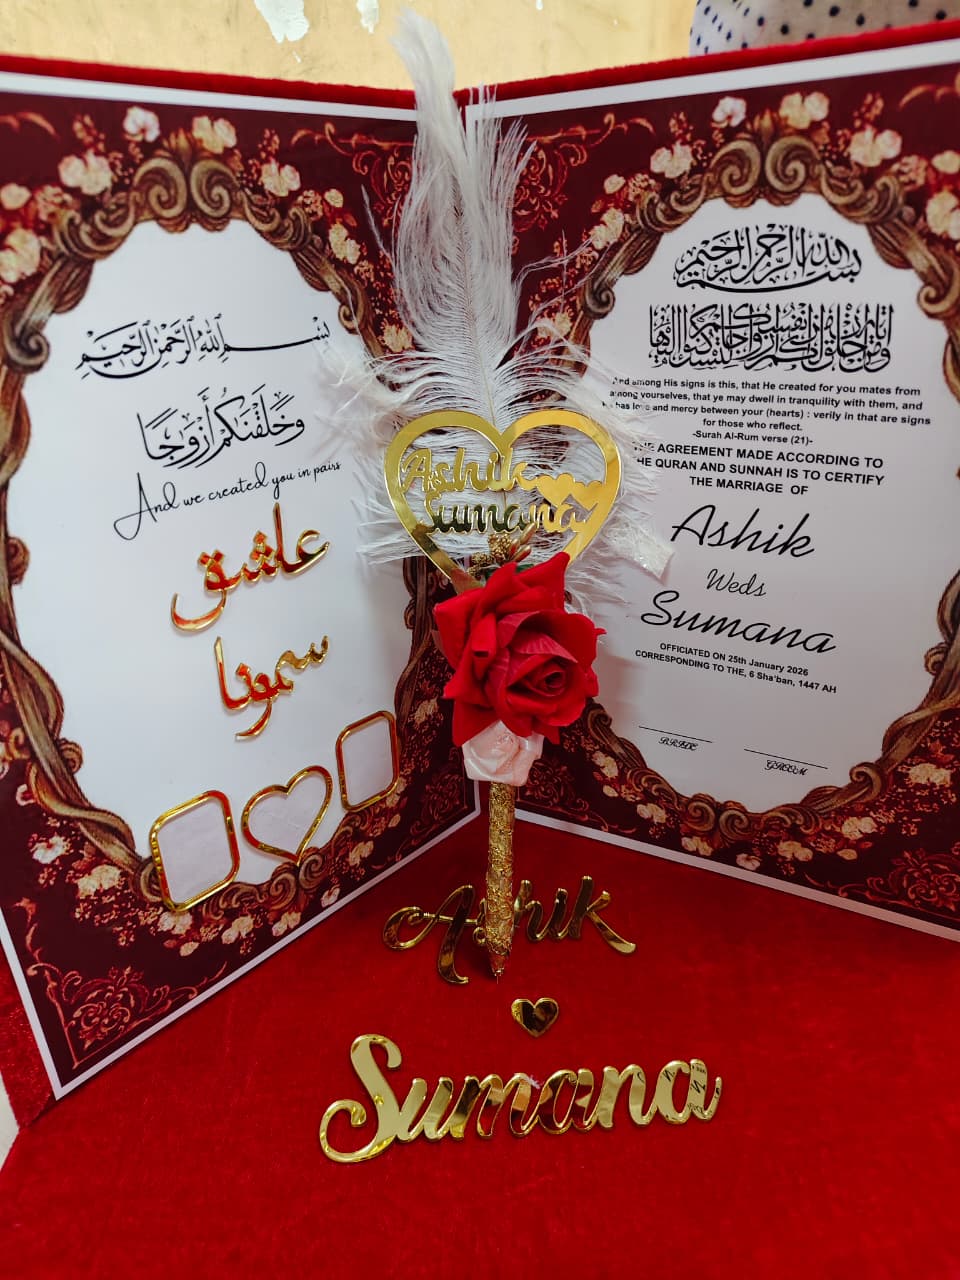 بِسْمِ اللَّهِ الرَّحْمَٰنِ الرَّحِيمِ
وَخَلَقْنَاكُمْ أَزْوَاجًا
And we created you in pairs
عاشق
سمونا
Ashik
Sumana
بِسْمِ اللَّهِ الرَّحْمَٰنِ الرَّحِيمِ
And among His signs is this, that He created for you mates from
among yourselves, that ye may dwell in tranquility with them, and
has love and mercy between your (hearts) : verily in that are signs
for those who reflect.
-Surah Al-Rum verse (21)-
THE AGREEMENT MADE ACCORDING TO
THE QURAN AND SUNNAH IS TO CERTIFY
THE MARRIAGE OF
Ashik
Weds
Sumana
OFFICIATED ON 25th January 2026
CORRESPONDING TO THE, 6 Sha'ban, 1447 AH
BRIDE
GROOM
Ashik
Sumana